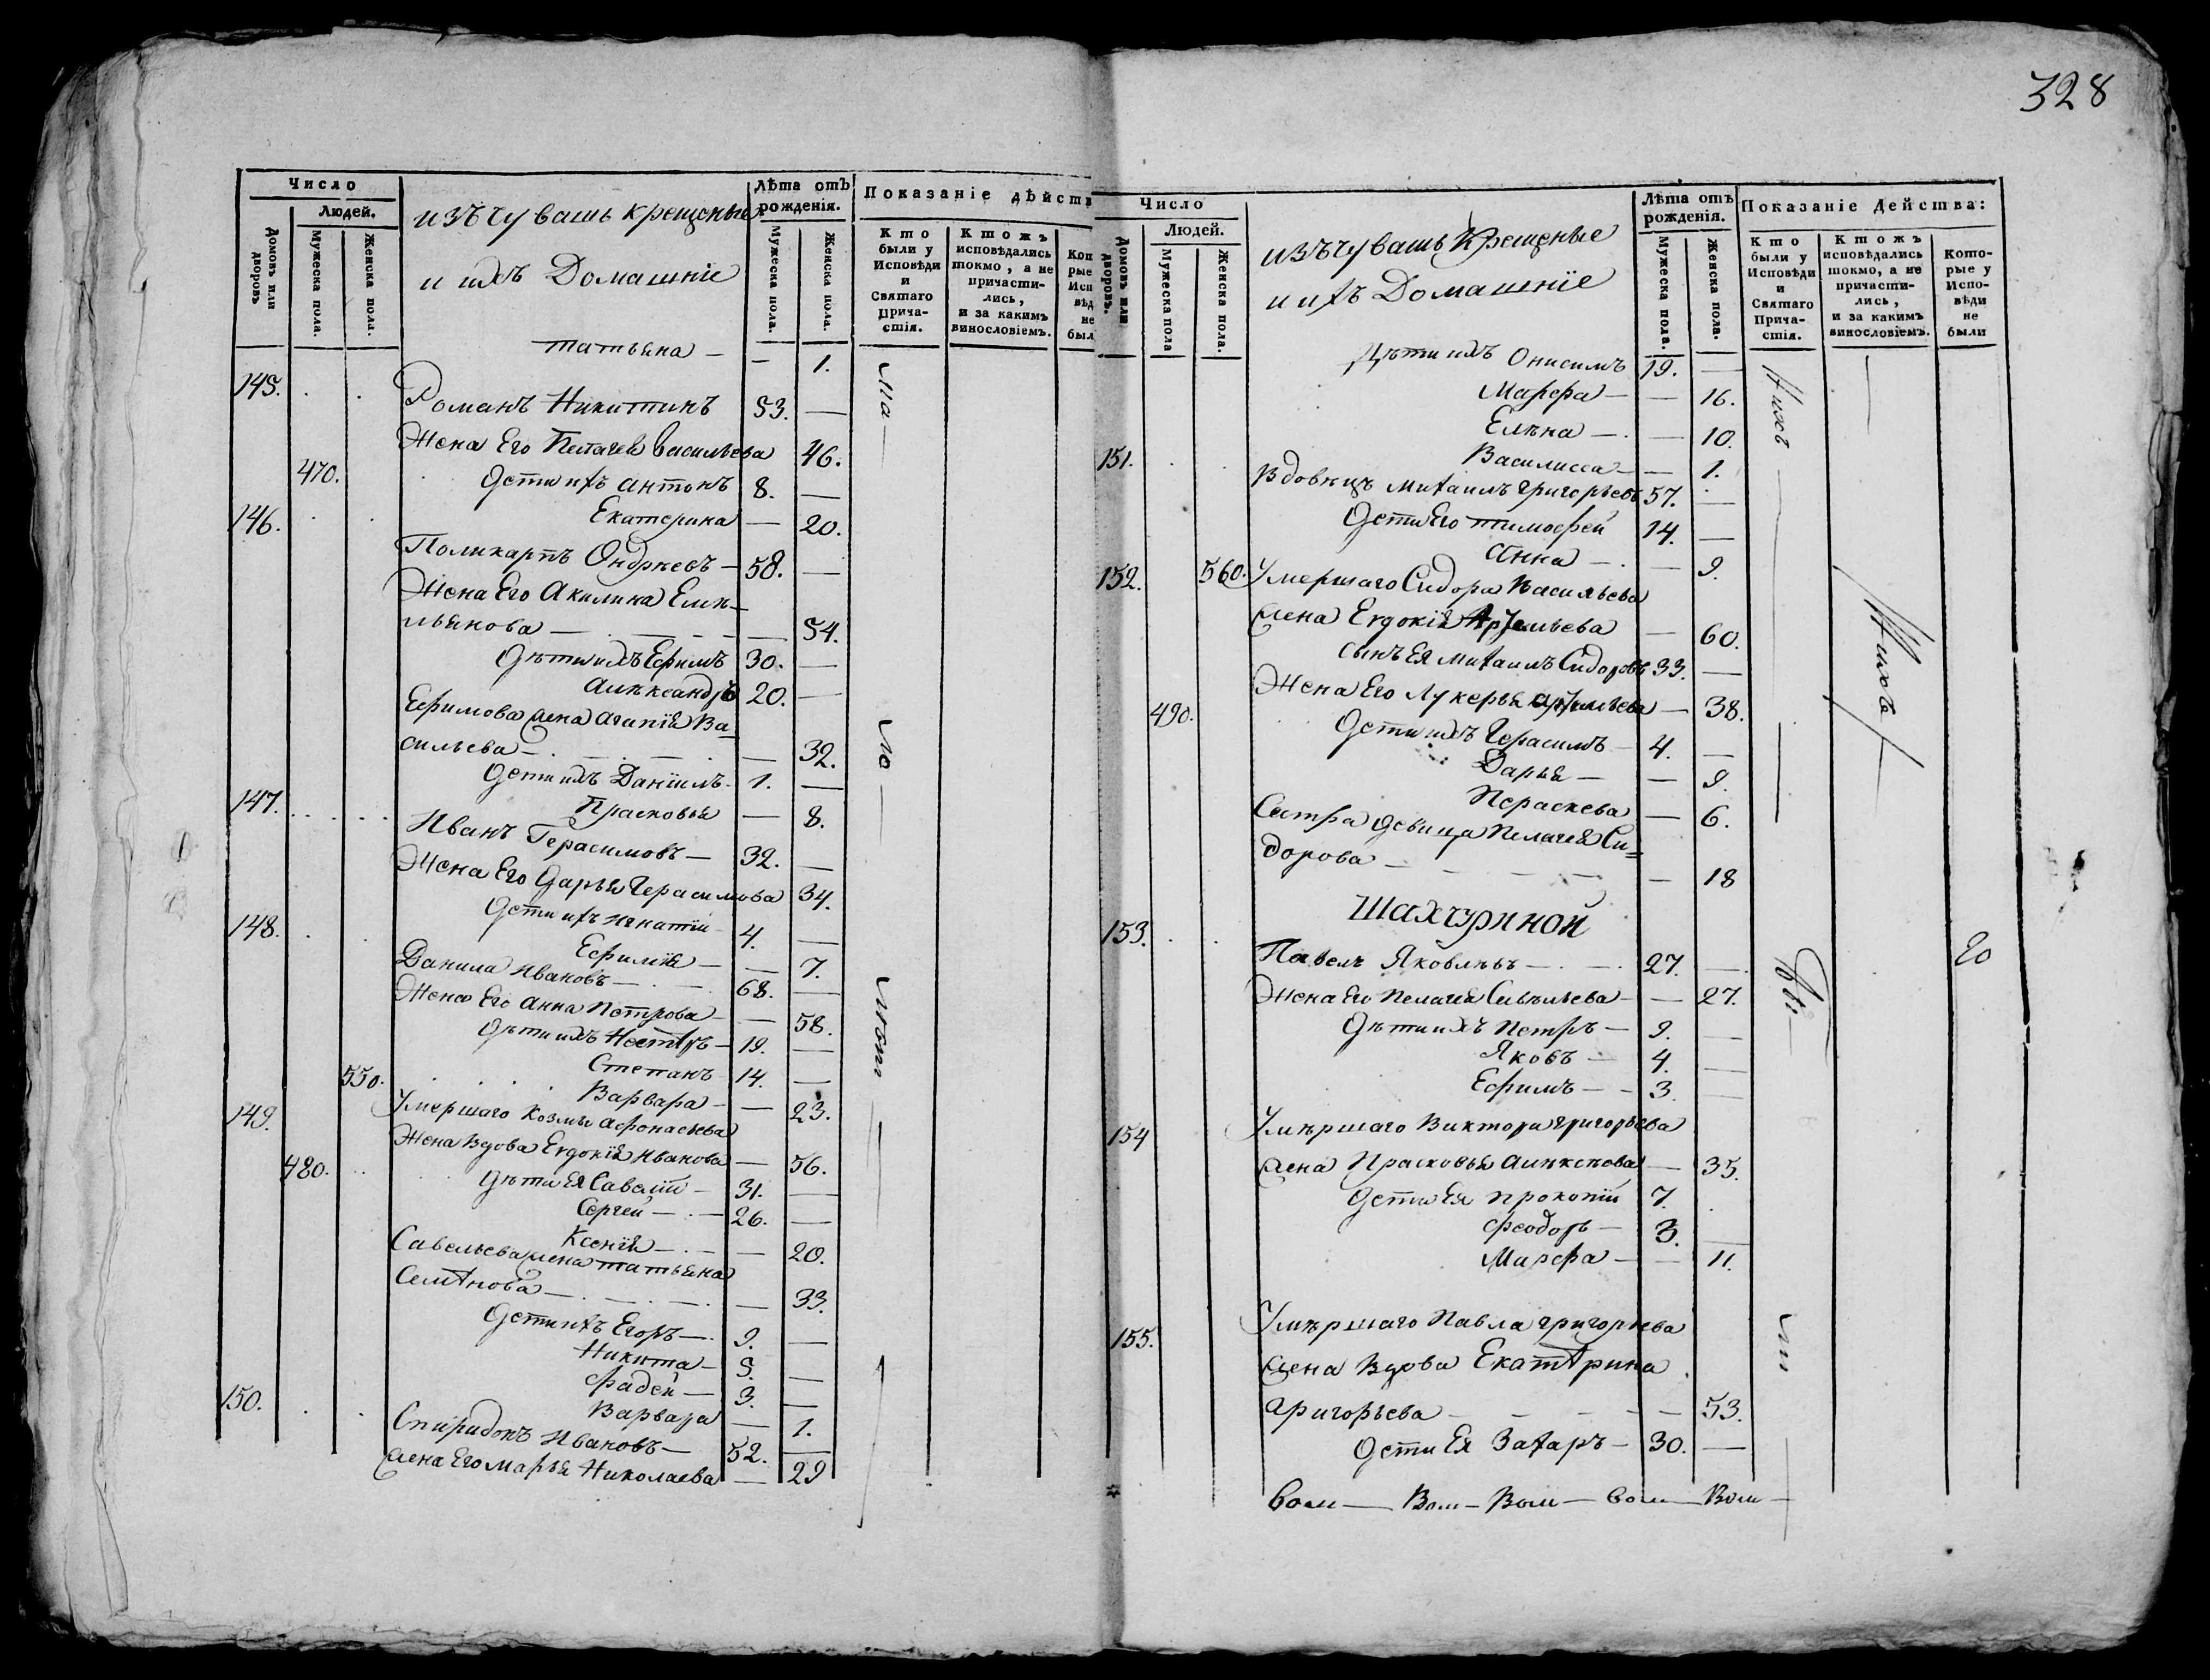 328
Число
Людей.
Домовъ или дворовъ
Мужеска пола.
Женска пола.
изъ чувашъ крещеные
и ихъ Домашніе
Лѣта отъ рожденія.
Мужеска пола.
Женска пола.
Показаніе дѣйств
Кто были у Исповѣди и Святаго Прича-стія.
Ктожъ исповѣдались токмо, а не причасти-лись, и за какимъ винословіемъ.
Кот рые Исп вѣд не был
татьяна — — 1.
145. Романъ Никитинъ 53. —
Жена Его Пелагея Васильева 46.
470. Дети ихъ антонъ 8. —
Екатерина — 20.
146. Поликарпъ Ондреевъ — 58. —
Жена Его Акилина Емѣ-
льянова — — 54.
Дѣти ихъ Ефимъ 30. —
Алѣксандръ 20. —
Ефимова жена агапія Ва-
сильева — — 32.
Дети ихъ Даніилъ 1. —
Прасковья — 8.
147. Иванъ Герасимовъ — 32. —
Жена Его Дарья Герасимова 34.
Дети ихъ игнатіи 4. —
Ефимія — — 7.
148. Данила Ивановъ — 68. —
Жена Его Анна Петрова — — 58.
Дѣти ихъ Нестѣръ — 19. —
Степанъ 14. —
550. Варвара — — 23.
149. Умершаго Козмы афонасьева
Жена вдова Евдокія Иванова — 56.
480. Дѣти Ея Савеліи — 31. —
Сергеи — 26. —
Ксенія — — 20.
Савельева жена татьяна
Семѣнова — — 33.
Дети ихъ Егоръ — 9. —
Никита — 5. —
Фадеи — 3. —
Варвара — 1.
150. Спиридонъ Ивановъ — 52. —
жена Его Марья Николаева — 29
Число
Людей.
Домовъ или дворовъ.
Мужеска пола
Женска пола.
изъ чувашъ Крещеные
и ихъ Домашніе
Лѣта отъ рожденія.
Мужеска пола.
Женска пола.
Показаніе Действа:
Кто были у Исповѣди и Святаго Прича-стія.
Ктожъ исповѣдались токмо, а не причасти-лись, и за какимъ винословіемъ.
Кото-рые у Испо-вѣди не были
Дѣти ихъ Онисимъ 19. —
Марфа — — 16.
Елѣна — — 10.
Василисса — — 1.
151. Вдовецъ михаилъ григорьевъ 57. —
Дети Его тимофеи 14. —
Анна — — 9.
152. 560. Умершаго Сидора Васильева
жена Евдокія Артемьева — 60.
сынъ Ея михаилъ Сидоровъ 33. —
Жена Его Лукерья артемьева — 38.
490. Дети ихъ Герасимъ — 4. —
Дарья — — 9.
Параскева — 6.
Сестра девица Пелагея Си=
дорова — — 18
Шахчуриной
153. Павелъ Яковлѣвъ — 27. —
Жена Его Пелагея Савѣльева — — 27.
Дѣти ихъ Петръ — 9. —
Яковъ — 4. —
Ефимъ — 3 —
154 Умѣршаго Виктора григорьева
жена Прасковья алѣксѣева — 35.
Дети Ея прокопіи 7.
Феодоръ — 3. —
Марфа — — 11.
155. Умѣршаго Павла григорьева
жена вдова Екатѣрина
григорьева — — 53.
Дети Ея Захаръ — 30. —